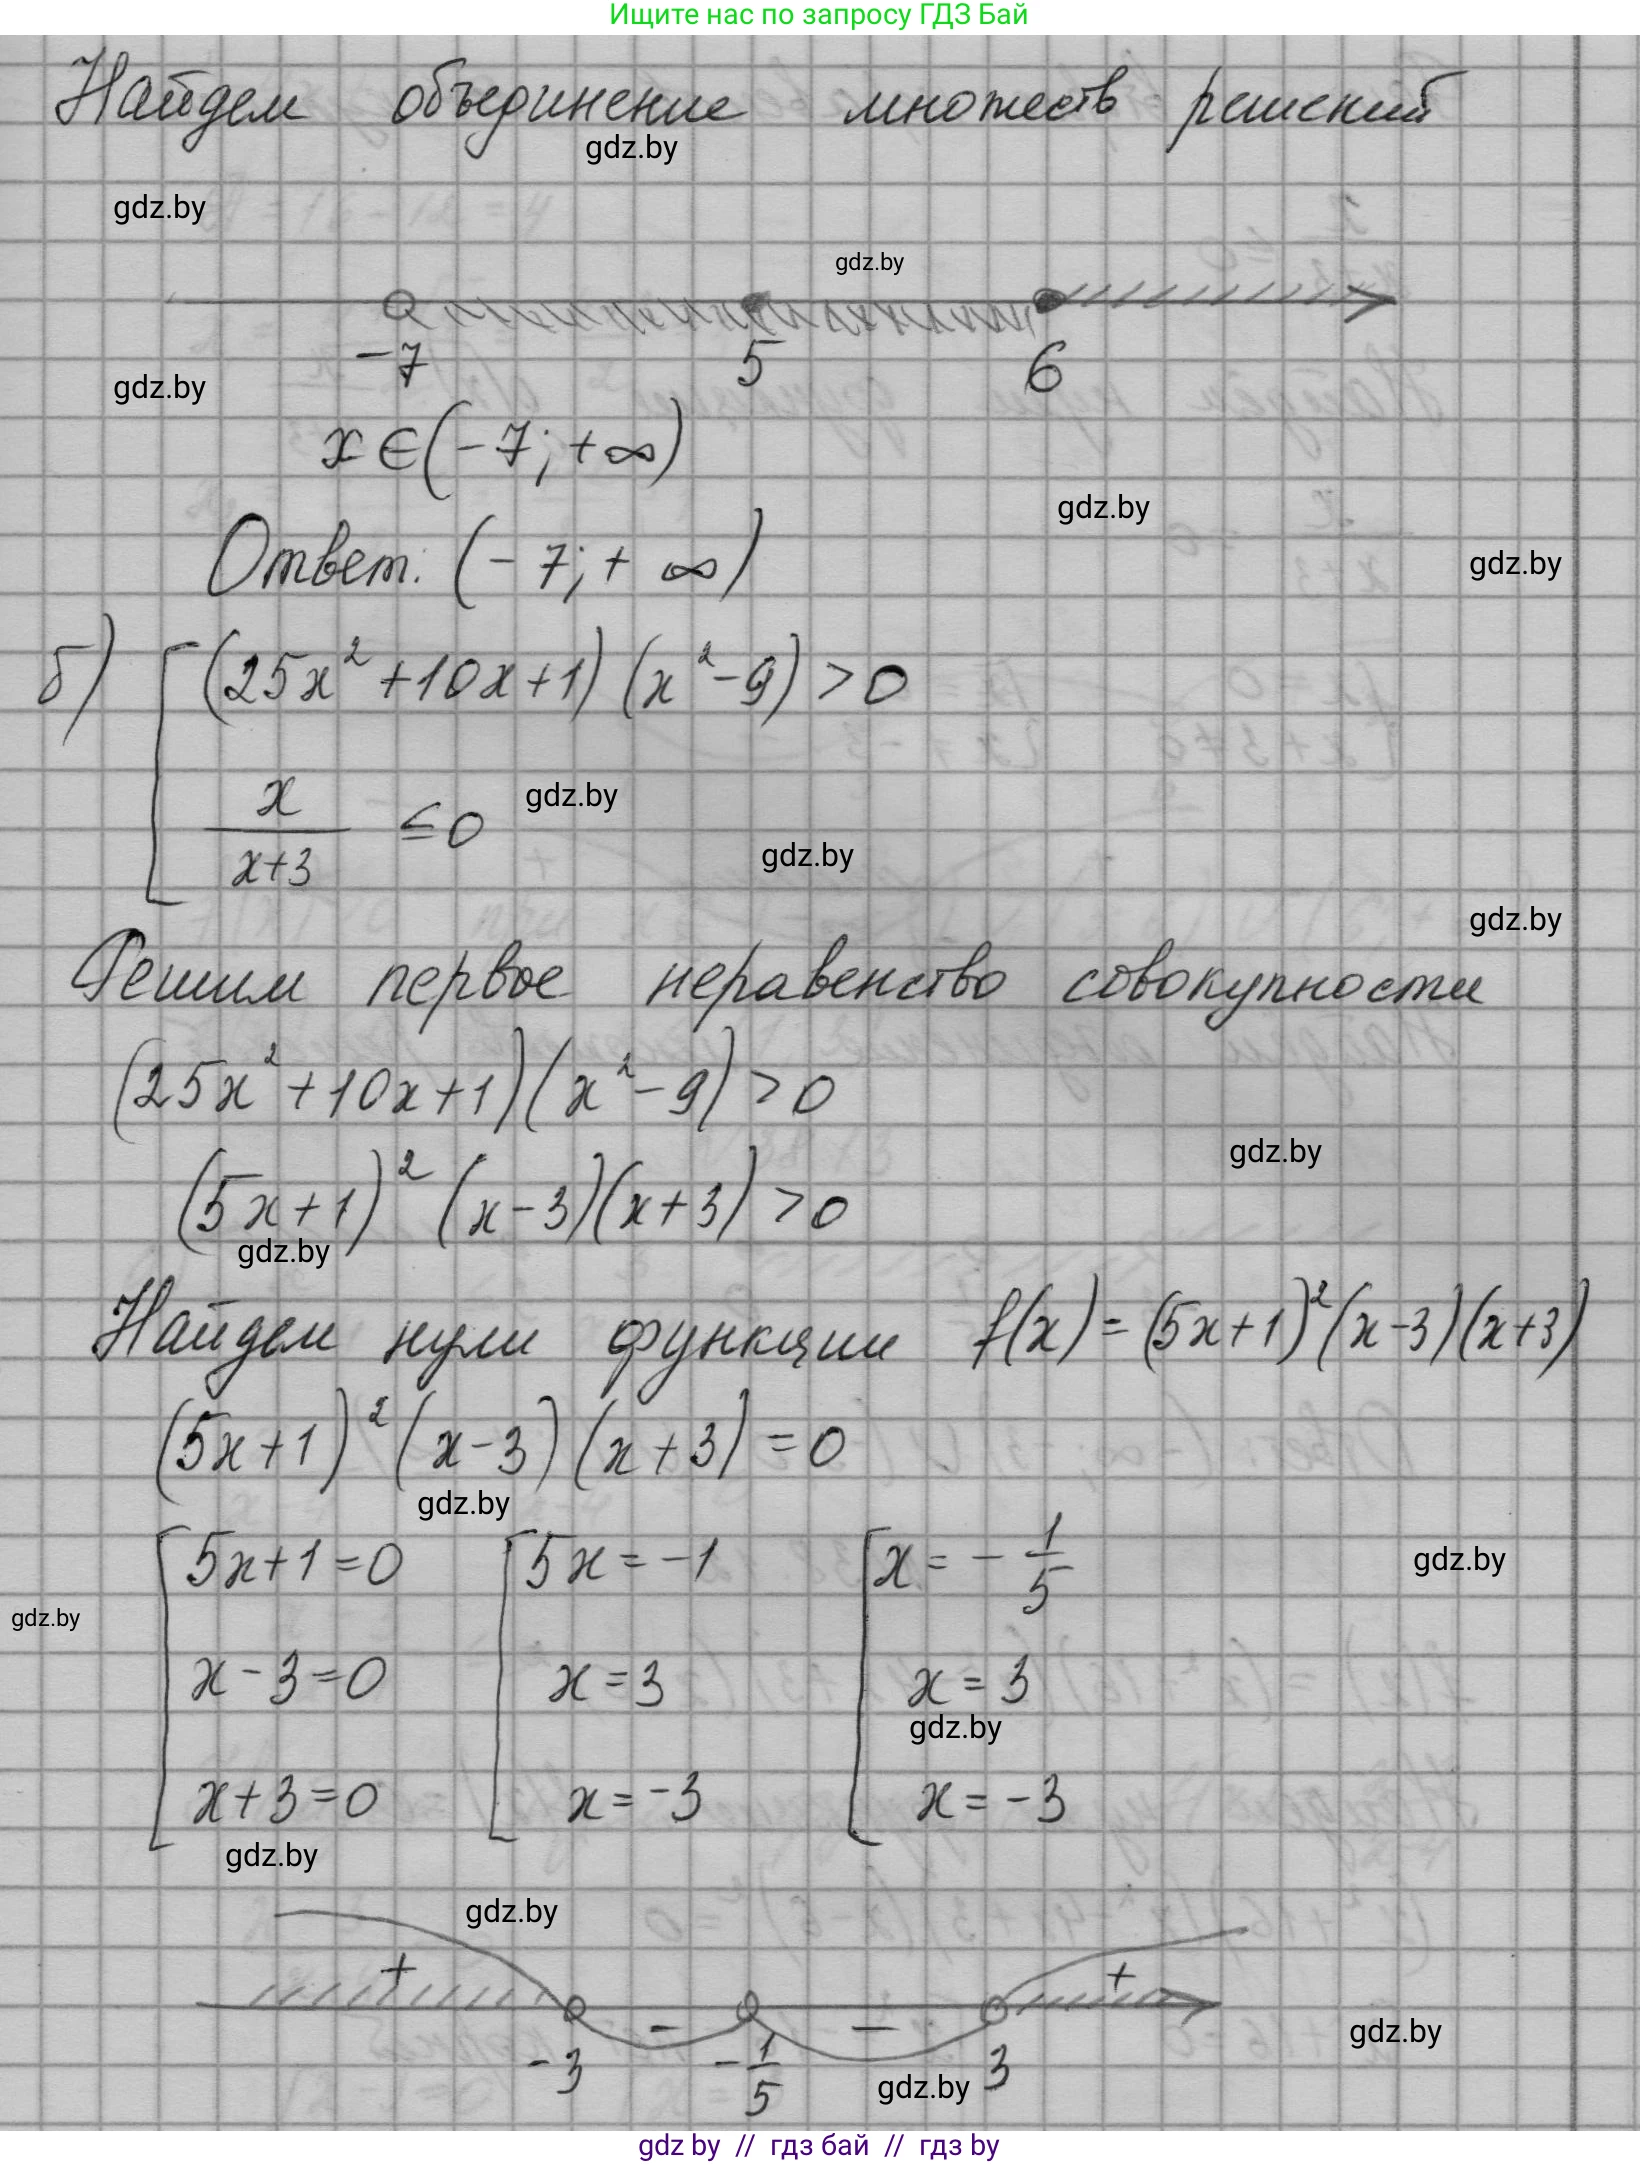 Ищите нас по запросу ГДЗ Бай
Найдем объединение множеств решений
gdz.by
gdz.by
gdz.by
-7 5 6
gdz.by
x∈(-7;+∞)
gdz.by
Ответ: (-7;+∞)
gdz.by
б) [ (25x²+10x+1)(x²-9)>0
x/(x+3) ≤0
gdz.by
gdz.by
gdz.by
Решим первое неравенство совокупности
(25x²+10x+1)(x²-9)>0
gdz.by
(5x+1)²(x-3)(x+3)>0
gdz.by
Найдем нули функции f(x)=(5x+1)²(x-3)(x+3)
(5x+1)²(x-3)(x+3)=0
gdz.by
[ 5x+1=0 [ 5x=-1 [ x=-1/5
gdz.by
gdz.by
x-3=0 x=3 x=3
gdz.by
x+3=0 x=-3 x=-3
gdz.by
gdz.by
+ - - +
gdz.by
-3 -1/5 3
gdz.by
gdz by // гдз бай // gdz by